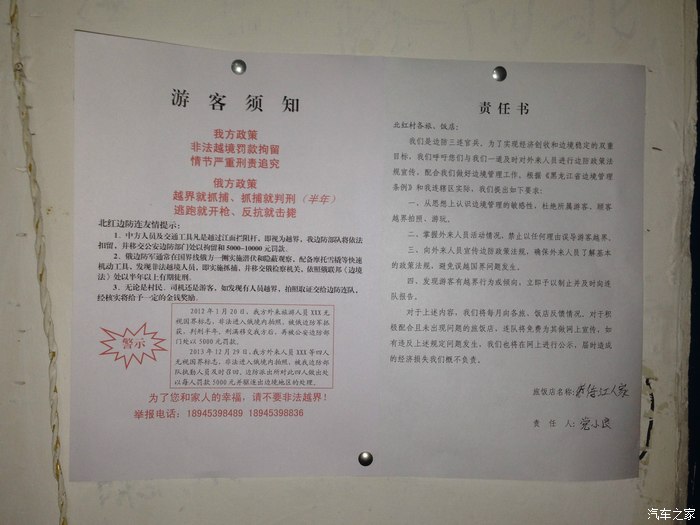 游 客 须 知
我方政策
非法越境罚款拘留
情节严重刑责追究
俄方政策
越界就抓捕、抓捕就判刑（半年）
逃跑就开枪、反抗就击毙
北红边防连友情提示：
1．中方人员及交通工具凡是越过江面拦阻杆，即视为越界，我边防部队将依法
扣留，并移交公安边防部门处以拘留和 5000-10000 元罚款。
2．俄边防军通常在国界线俄方一侧实施潜伏和隐蔽观察，配备摩托雪橇等快速
机动工具、发现非法越境人员，即实施抓捕，并移交级检察机关，依照俄联邦《边境
法》处以半年以上有期徒刑。
3．无论是村民、司机还是游客，如发现有人员越界，拍照取证交给边防连队，
经核实将给予一定的金钱奖励。
警示
2012 年 1 月 20 日，我方外来旅游人员 XXX 无
视国界标志，非法进入俄境内拍照，被俄边防军抓
获，判刑半年，刑满移交我方后，再被公安边防部
门处以 5000 元罚款。
2013 年 12 月 29 日，我方外来人员 XXX 等四人
无视国界标志，非法进入俄境内拍照，被我边防部
队执勤人员及时召回，边防派出所对此四人做出处
以每人罚款 5000 元并驱逐出边境地区的处理。
为了您和家人的幸福，请不要非法越界！
举报电话：18945398489 18945398836
责任书
北红村各旅、饭店：
我们是边防三连官兵，为了实现经济创收和边境稳定的双重
目标，我们呼吁您们与我们一道及时对外来人员进行边防政策法
规宣传，配合我们做好边境管理工作。根据《黑龙江省边境管理
条例》和我连辖区实际，我们提出如下要求：
一、从思想上认识边境管理的敏感性，杜绝所属游客、顾客
越界拍照、游玩。
二、掌握外来人员活动情况，禁止以任何理由误导游客越界。
三、向外来人员宣传边防政策法规，确保外来人员了解基本
的政策法规，避免误越国界问题发生。
四、发现游客有越界行为或倾向，立即予以制止并及时向连
队报告。
对于上述内容，我们将每月向各旅、饭店反馈情况。对于积
极配合且未出现问题的旅饭店，连队将免费为其做网上宣传，如
有违反上述规定问题发生，我们也将在网上进行公示，届时造成
的经济损失我们概不负责。
旅饭店名称：
责 任 人：
汽车之家